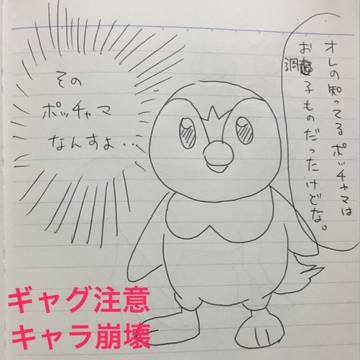 オレの知ってるポッチャマは
お調子ものだったけどな。
その
ポッチャマ
なんすよ…
ギャグ注意
キャラ崩壊